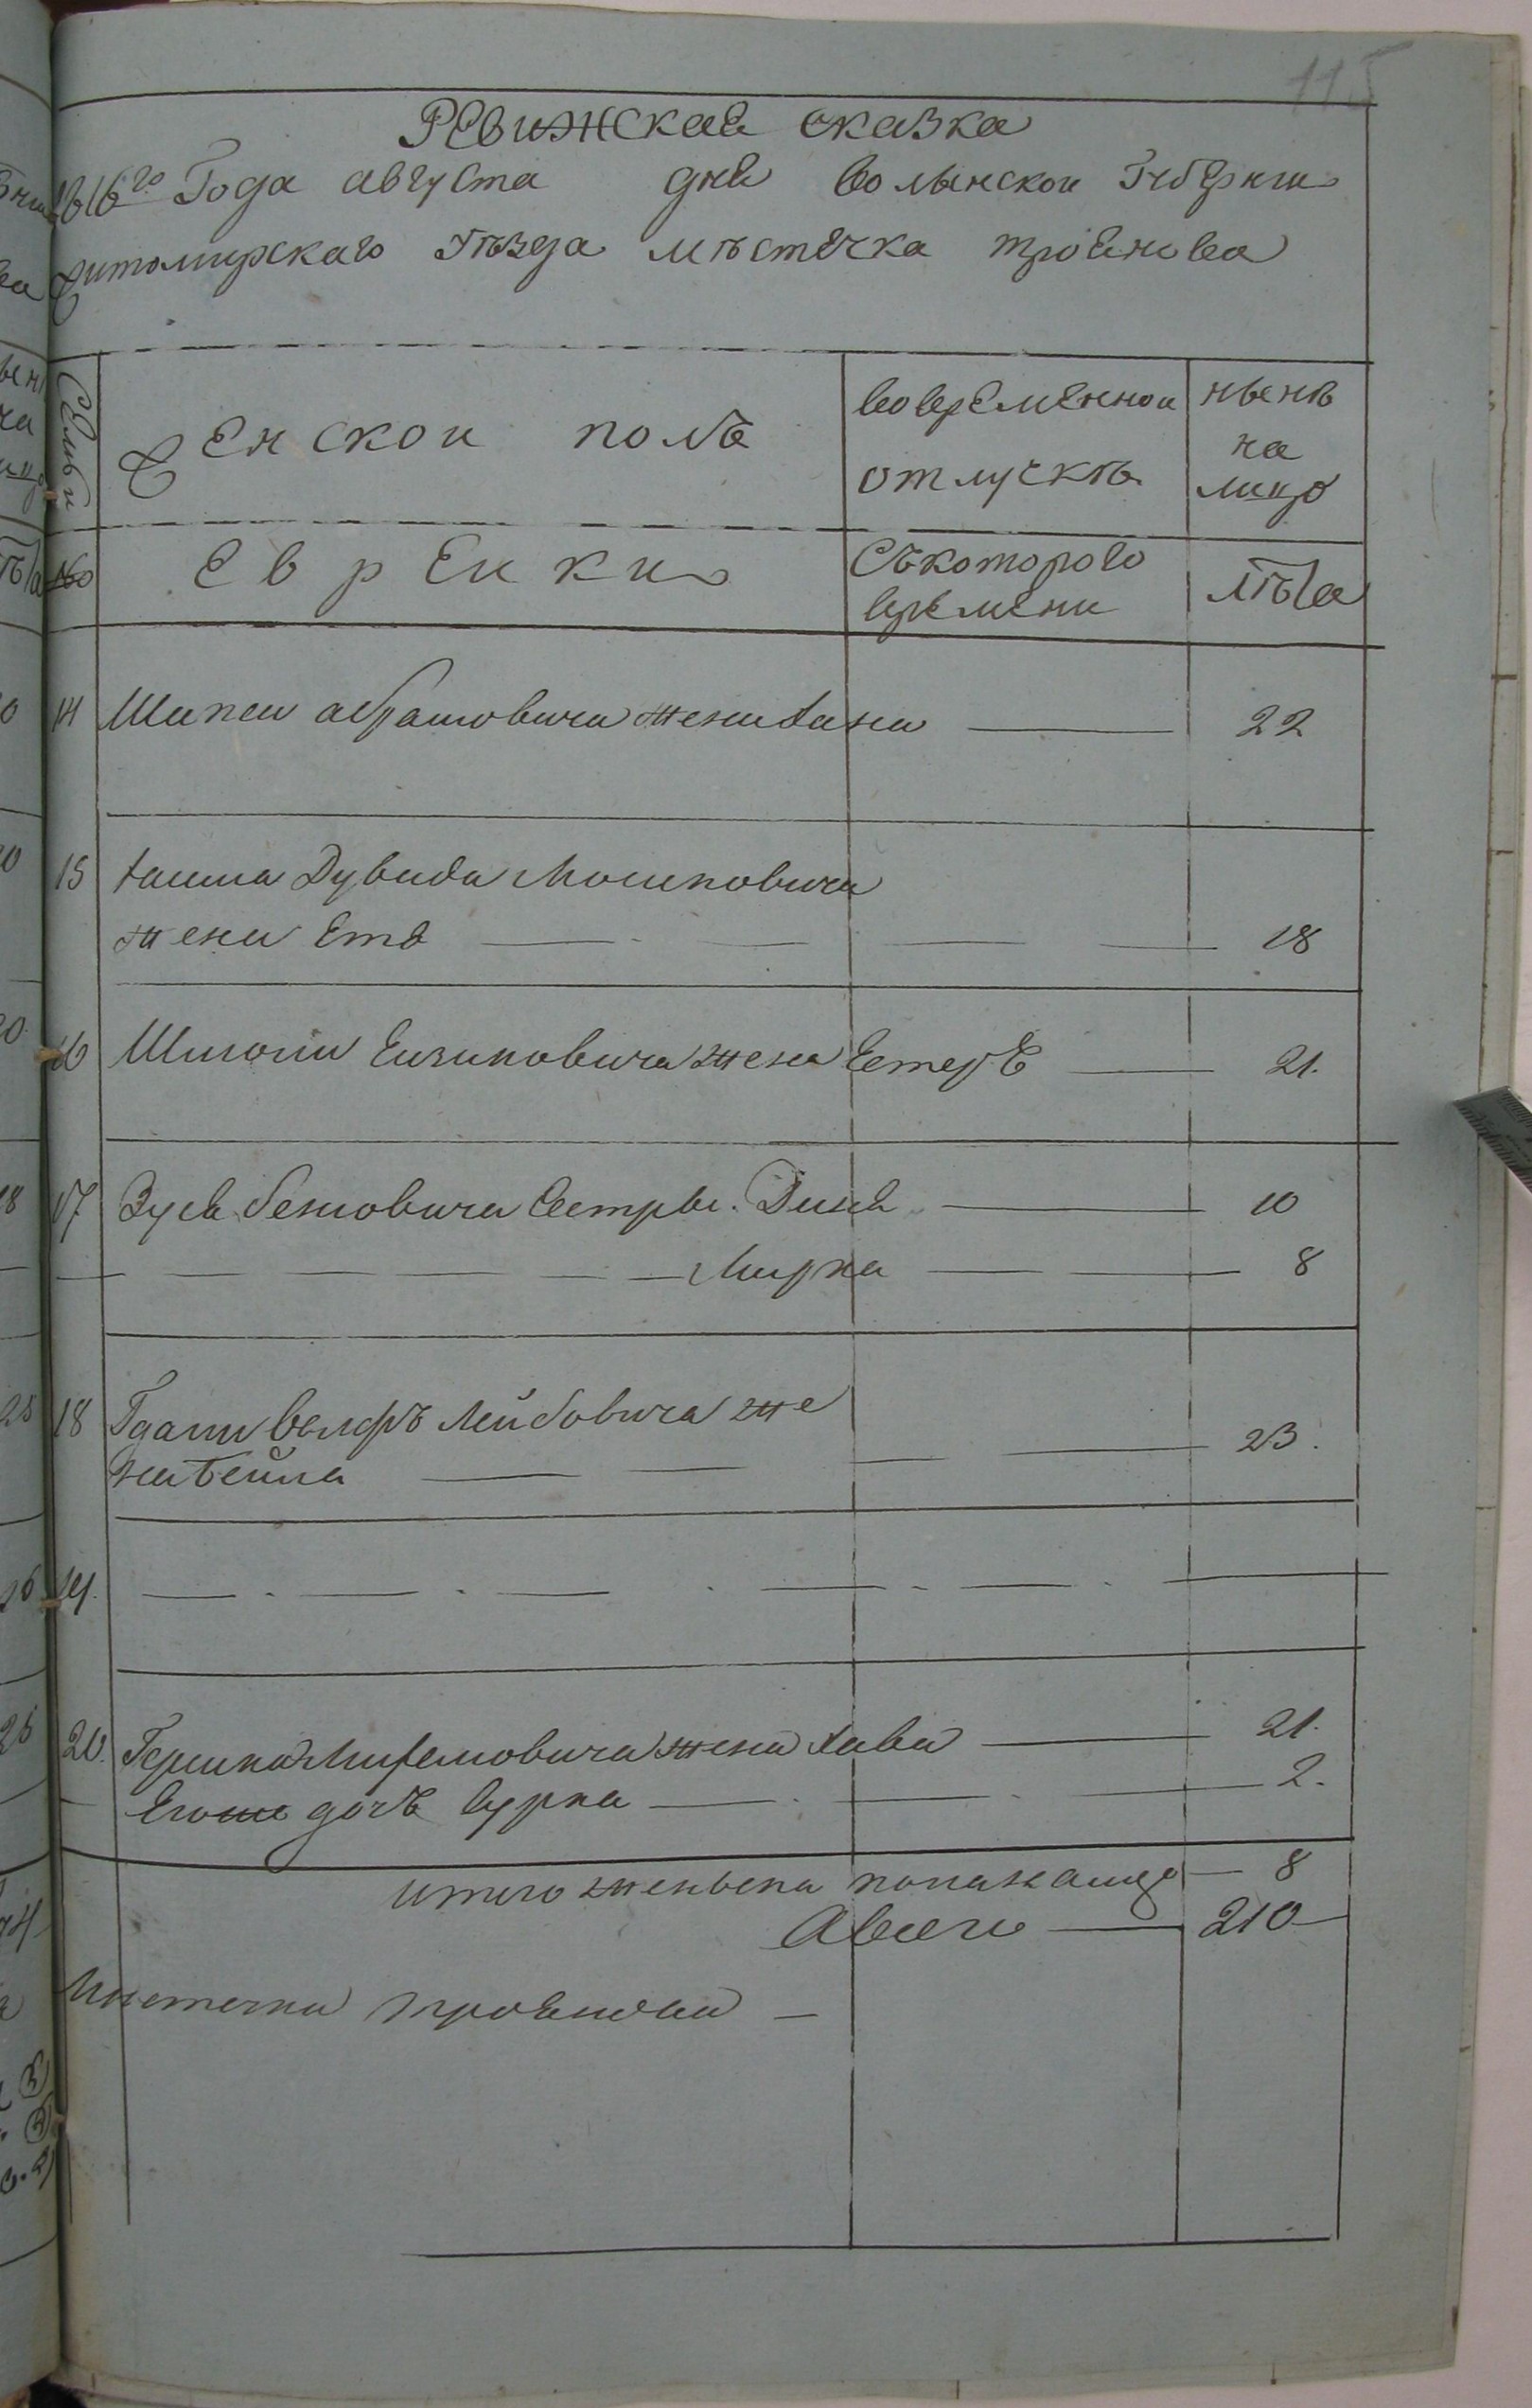 115
Ревижская сказка
1816го Года августа дня волынскои Губернии
Житомирскаго Уѣзда мѣстечка троянова
Семьи
Женскои полъ
вовременнои
отлучкѣ
нынѣ
на
лицо
№
Евреики
Съкоторого
времени
лѣта
14 Шапси абрамовича жена Хана — 22
15 Хаима Дувида Мошковича
жена Етя — 18
16 Шмоили Еизиковича жена Естеръ — 21.
17 Зуся бенюовича Сестры. Дина — 10
— Мирка — 8
18 Гдали волфъ Лейбовича же
на Бейла — 23.
19. —
20. Гершка жена Хава — 21.
Егоже дочъ Сурка — 2.
итого женска пола налицо — 8
Авсего — 210
Мѣстечка троянова —